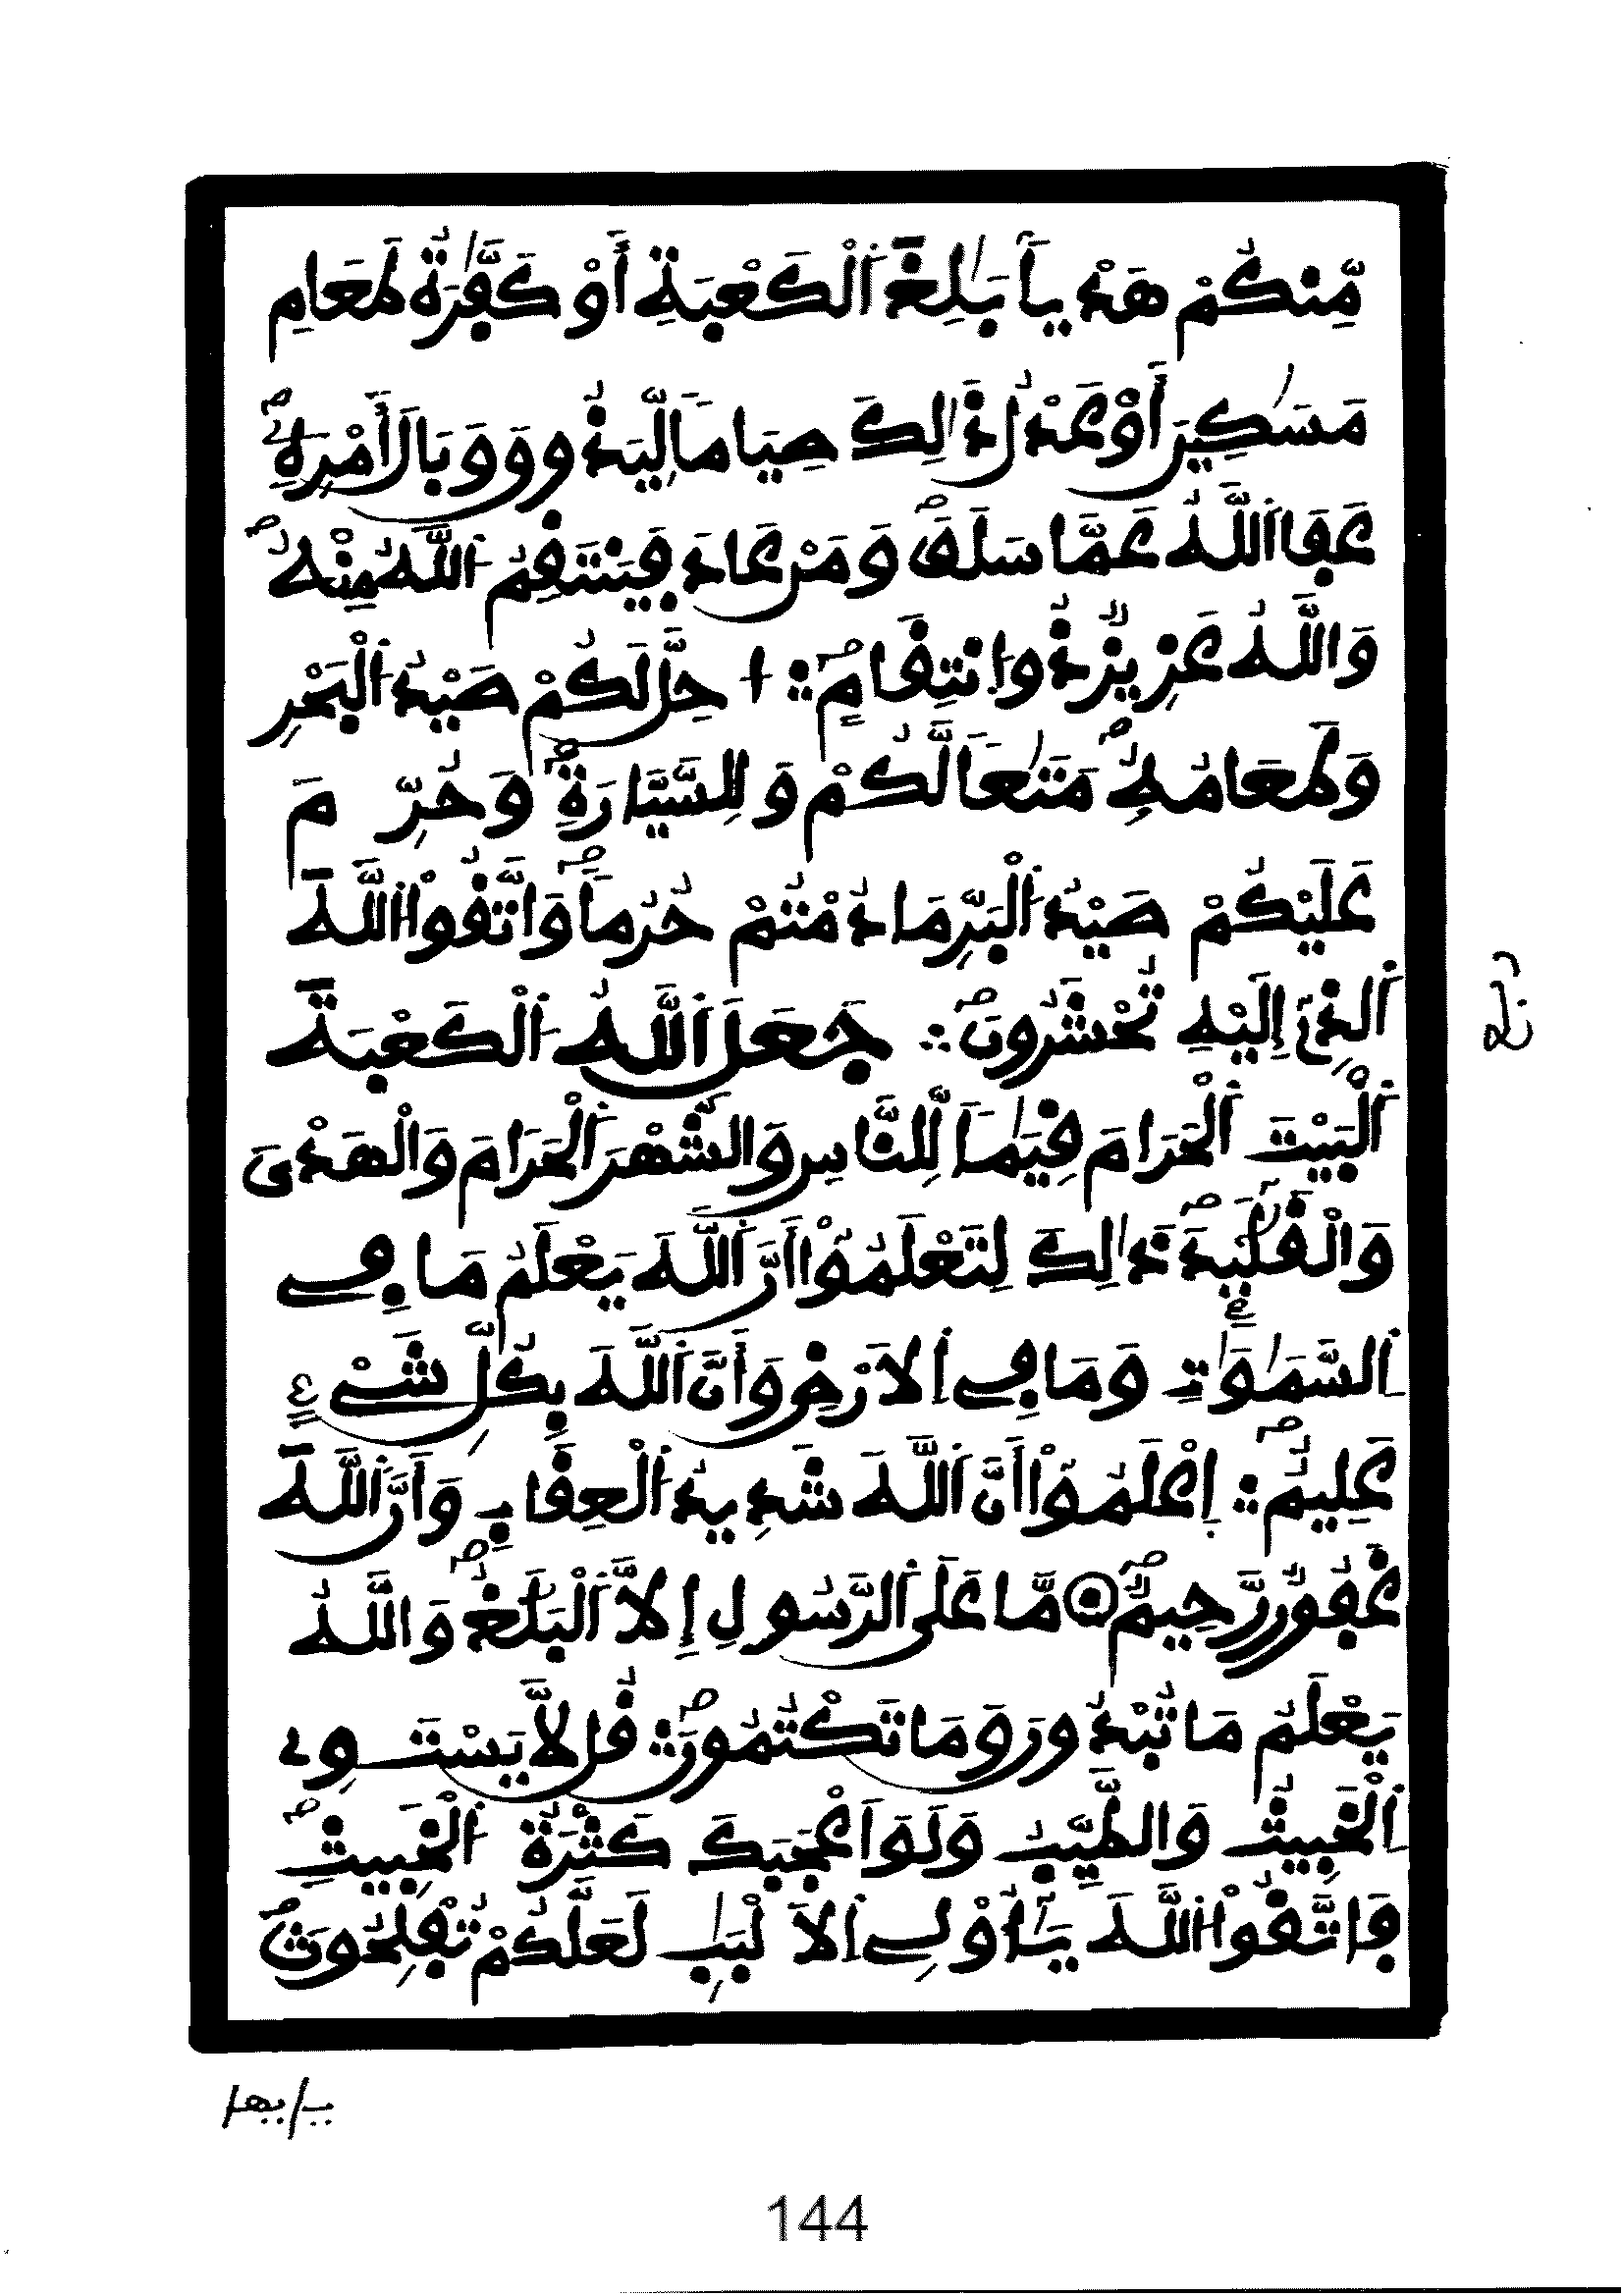 مِّنكُمْ هَدْياَۢ بَٰلِغَ اَ۬لْكَعْبَةِ أَوْ كَفَّٰرَةُ طَعَامِ
مَسَٰكِينَ أَوْ عَدْلُ ذَٰلِكَ صِيَاماٗ لِّيَذُوقَ وَبَالَ أَمْرِهِۦۖ
عَفَا اَ۬للَّهُ عَمَّا سَلَفَۖ وَمَنْ عَادَ فَيَنتَقِمُ اُ۬للَّهُ مِنْهُۖ
وَاللَّهُ عَزِيزٞ ذُو اُ۪نتِقَامٍۖ ا حِلَّ لَكُمْ صَيْدُ اُ۬لْبَحْرِ
وَطَعَامُهُۥ مَتَٰعاٗ لَّكُمْ وَلِلسَّيَّارَةِۖ وَحُرِّمَ
عَلَيْكُمْ صَيْدُ اُ۬لْبَرِّ مَا دُمْتُمْ حُرُماٗۖ وَاتَّقُواْ اُ۬للَّهَ
اَ۬لذِے إِلَيْهِ تُحْشَرُونَۖ جَعَلَ اَ۬للَّهُ اُ۬لْكَعْبَةَ
اَ۬لْبَيْتَ اَ۬لْحَرَامَ قِيَٰماٗ لِّلنَّاسِ وَالشَّهْرَ اَ۬لْحَرَامَ وَالْهَدْيَ
وَالْقَلَٰٓئِدَۖ ذَٰلِكَ لِتَعْلَمُوٓاْ أَنَّ اَ۬للَّهَ يَعْلَمُ مَا فِے
اِ۬لسَّمَٰوَٰتِ وَمَا فِے اِ۬لَارْضِ وَأَنَّ اَ۬للَّهَ بِكُلِّ شَےْءٍ
عَلِيمٌۖ اِ۪عْلَمُوٓاْ أَنَّ اَ۬للَّهَ شَدِيدُ اُ۬لْعِقَابِ وَأَنَّ اَ۬للَّهَ
غَفُورٞ رَّحِيمٞۖ مَّا عَلَي اَ۬لرَّسُولِ إِلَّا اَ۬لْبَلَٰغُۖ وَاللَّهُ
يَعْلَمُ مَا تُبْدُونَ وَمَا تَكْتُمُونَۖ قُل لَّا يَسْتَوِے
اِ۬لْخَبِيثُ وَالطَّيِّبُ وَلَوَ اَعْجَبَكَ كَثْرَةُ اُ۬لْخَبِيثِۖ
فَاتَّقُواْ اُ۬للَّهَ يَٰٓأُوْلِے اِ۬لَالْبَٰبِ لَعَلَّكُمْ تُفْلِحُونَۖ
ربع
يأيها
144